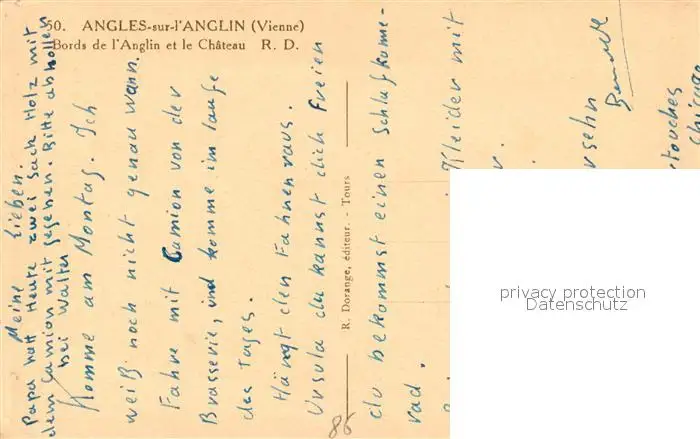 50. ANGLES-sur-l'ANGLIN (Vienne)
Bords de l'Anglin et le Château R. D.
Meine Lieben.
Papa hatt Heute zwei Sack Holz mit
dem Camion mit gegeben. Bitte abhollen
bei Walter
Komme am Montag. Ich
weiß noch nicht genau wann.
Fahre mit Camion von der
Brasserie, und komme im laufe
des tages.
Hängt den Fahnen raus.
Ursula du kannst dich freien
du bekommst einen Schlafkame-
rad.
Kleider mit
R. Dorange, éditeur. - Tours
86
privacy protection
Datenschutz